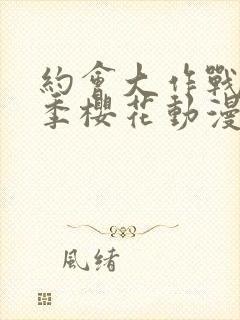 約會大作戰
季櫻花動漫
風緒